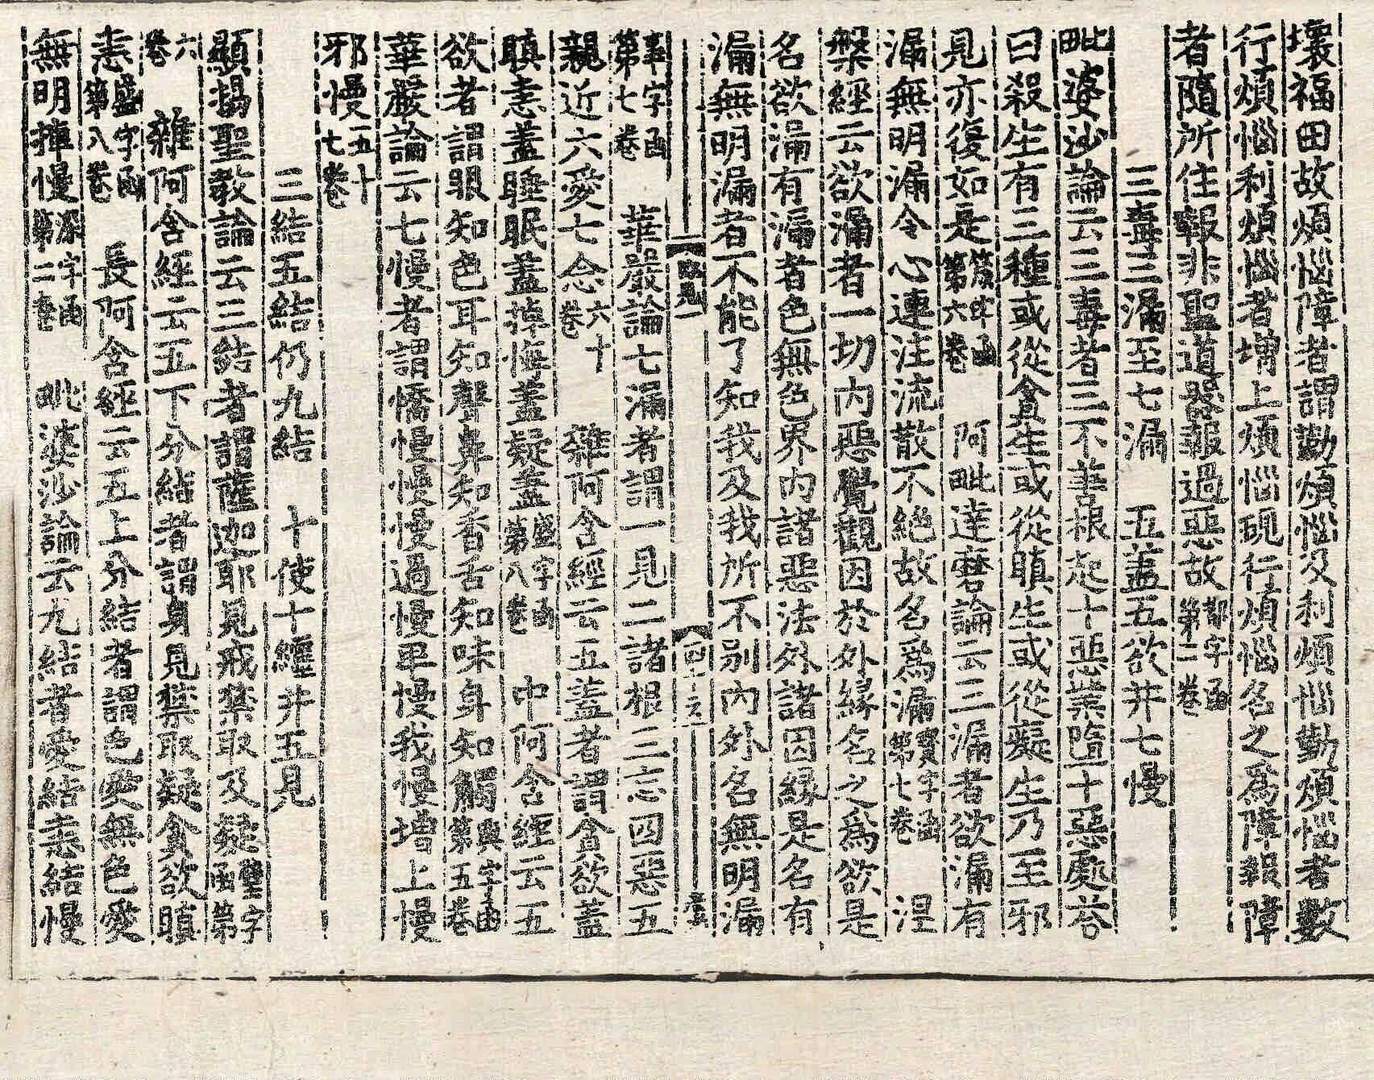 壞福田故煩惱障者謂勤煩惱及利煩惱勤煩惱者數
行煩惱利煩惱者增上煩惱現行煩惱名之爲障報障
者隨所住報非聖道器報過惡故都字函第二卷
三毒三漏至七漏　五盖五欲并七慢
毗婆沙論云三毒者三不善根起十惡業墮十惡處荅
曰殺生有三種或從貪生或從瞋生或從癡生乃至邪
見亦復如是第六卷　阿毗達磨論云三漏者欲漏有
漏無明漏令心連注流散不絶故名爲漏寶字函第七卷　涅
槃經云欲漏者一切内惡覺觀因於外緣名之爲欲是
名欲漏有漏者色無色界内諸惡法外諸因緣是名有
漏無明漏者不能了知我及我所不别内外名無明漏
事字函第七卷　華嚴論七漏者謂一見二諸根三忘四惡五
親近六愛七念六十卷　雜阿含經云五蓋者謂貪欲蓋
瞋恚蓋睡眠蓋掉悔蓋疑蓋盛字函第八卷　中阿含經云五
欲者謂眼知色耳知聲鼻知香舌知味身知觸興字函第五卷
華嚴論云七慢者謂憍慢慢慢過慢卑慢我慢增上慢
邪慢五十七卷
三結五結仍九結　十使十纏并五見
顯揚聖教論云三結者謂薩迦耶見戒禁取及疑璧字函第
六卷　雜阿含經云五下分結者謂身見禁取疑貪欲瞋
恚盛字函第八卷　長阿含經云五上分結者謂色愛無色愛
無明掉慢深字函第二卷　毗婆沙論云九結者愛結恚結慢